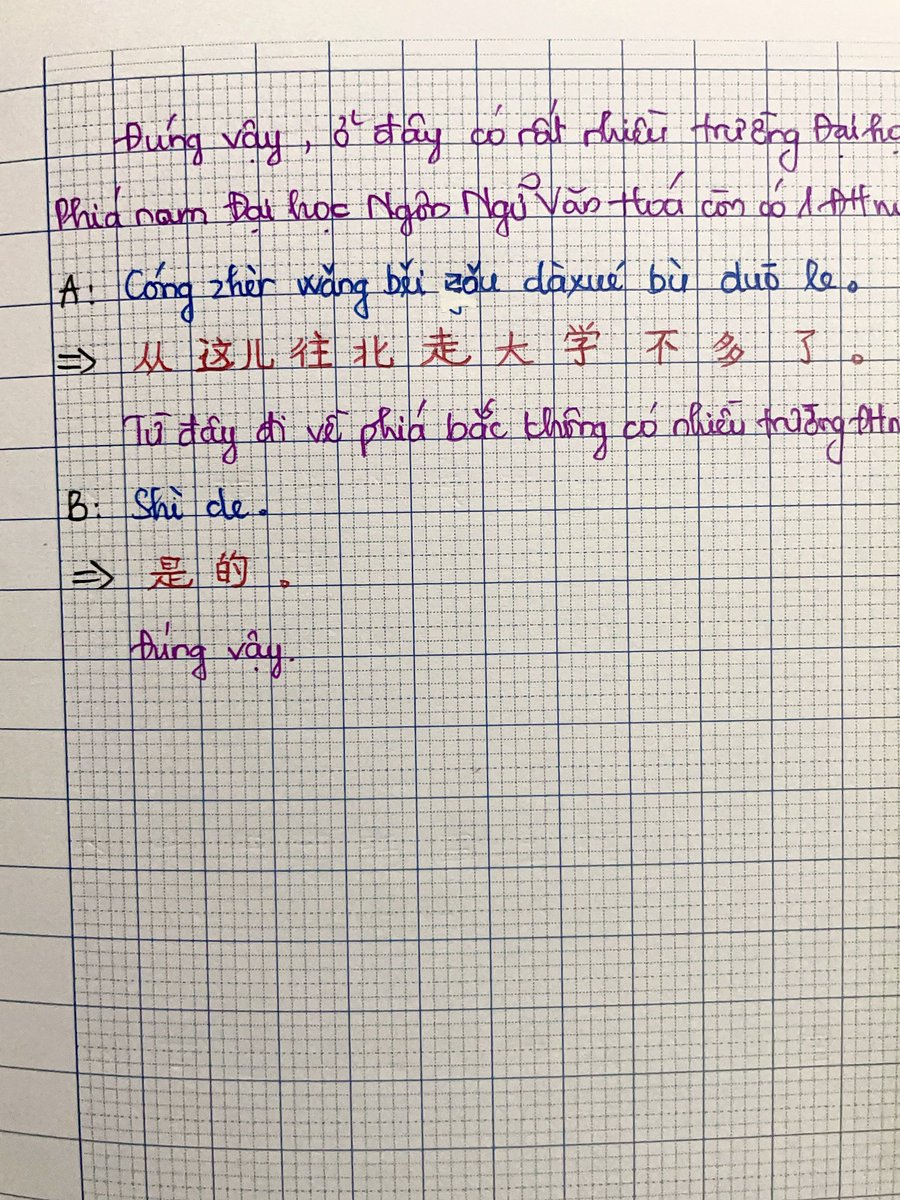 Đúng vậy, ở đây có rất nhiều trường Đại họ
Phiá nam Đại học Ngôn Ngữ Văn Hoá còn có 1 ĐH nữ
A: Cóng zhèr wǎng běi zǒu dàxué bù duō le.
⇒ 从这儿往北走大学不多了。
Từ đây đi về phiá bắc không có nhiều trường ĐH n
B: Shì de.
⇒ 是的。
Đúng vậy.